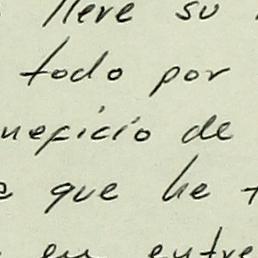 lleve su
todo por
neficio de
que he t
en entre